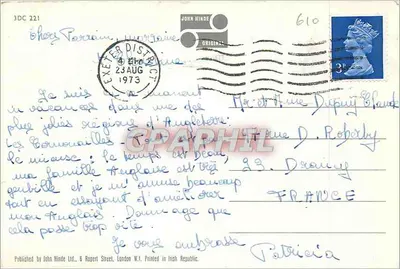 3DC 221
JOHN HINDE
ORIGINAL
610
Chers Parrain, marraine
EXETER DISTRICT
23 AUG
1973
Je suis en ce moment
en vacances dans une des
plus jolies régions d'Angleterre
Les Cornouailles.
le temps est beau,
ma famille Anglaise est très
gentille et je m'amuse beaucoup
tout en essayant d'améliorer
mon Anglais. Dommage que
cela passe trop vite.
Je vous embrasse
Patricia
Mr et Mme Dupuy Claude
D.
93. Drancy
FRANCE
CPARAMA
Published by John Hinde Ltd., 6 Rupert Street, London W.1. Printed in Irish Republic.